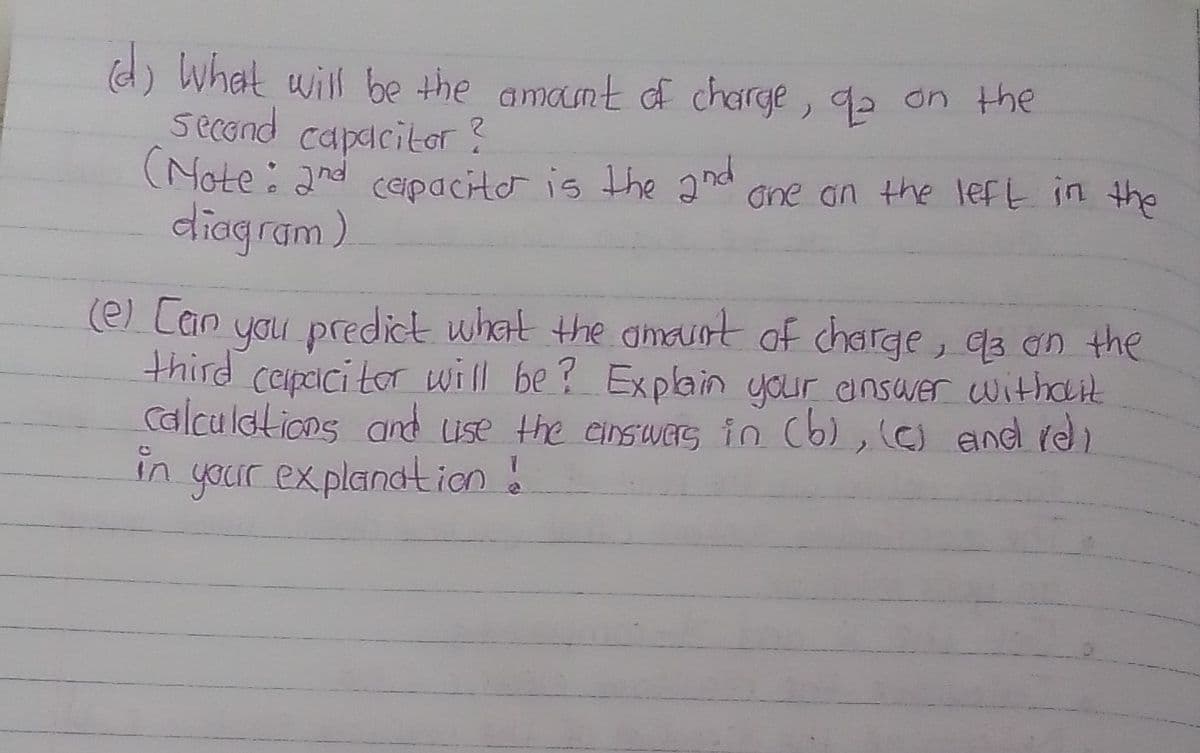 (d) What will be the amount of charge, q2 on the
second capacitor?
(Note: 2nd capacitor is the 2nd one on the left in the
diagram)
(e) Can you predict what the amount of charge, q3 on the
third capacitor will be? Explain your answer without
calculations and use the answers in (b), (c) and (d)
in your explanation!